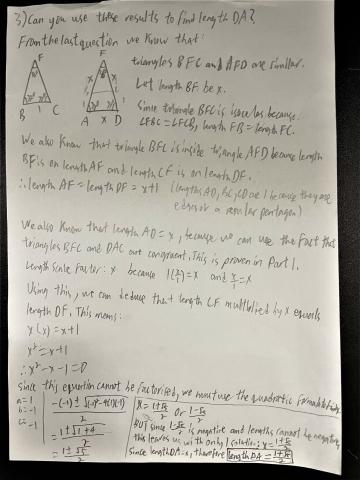 3) Can you use these results to find length DA?
From the last question we know that:
F
B 1 C
F
x x
1 1
A x D
triangles BFC and AFD are similar.
Let length BF be x.
Since triangle BFC is isosceles because
∠FBC = ∠FCB, length FB = length FC.
We also know that triangle BFC is inside triangle AFD because length
BF is on length AF and length CF is on length DF.
∴ length AF = length DF = x+1 (lengths AB, BC, CD are 1 because they are
edges of a regular pentagon)
We also know that length AD = x, because we can use the fact that
triangles BFC and DAC are congruent. This is proven in Part 1.
Length scale factor: x because 1(x/1) = x and x/1 = x
Using this, we can deduce that length CF multiplied by x equals
length DF. This means:
x(x) = x+1
x² = x+1
∴ x² - x - 1 = 0
since this equation cannot be factorised, we must use the quadratic formula
a = 1
b = -1
c = -1
-(-1) ± √(-1)² - 4(1)(-1) / 2
= 1 ± √1+4 / 2
= 1 ± √5 / 2
x = 1+√5 / 2 or 1-√5 / 2
BUT since 1-√5 / 2 is negative and lengths cannot be negative,
this leaves us with only 1 solution: x = 1+√5 / 2
since length DA = x, therefore length DA = 1+√5 / 2